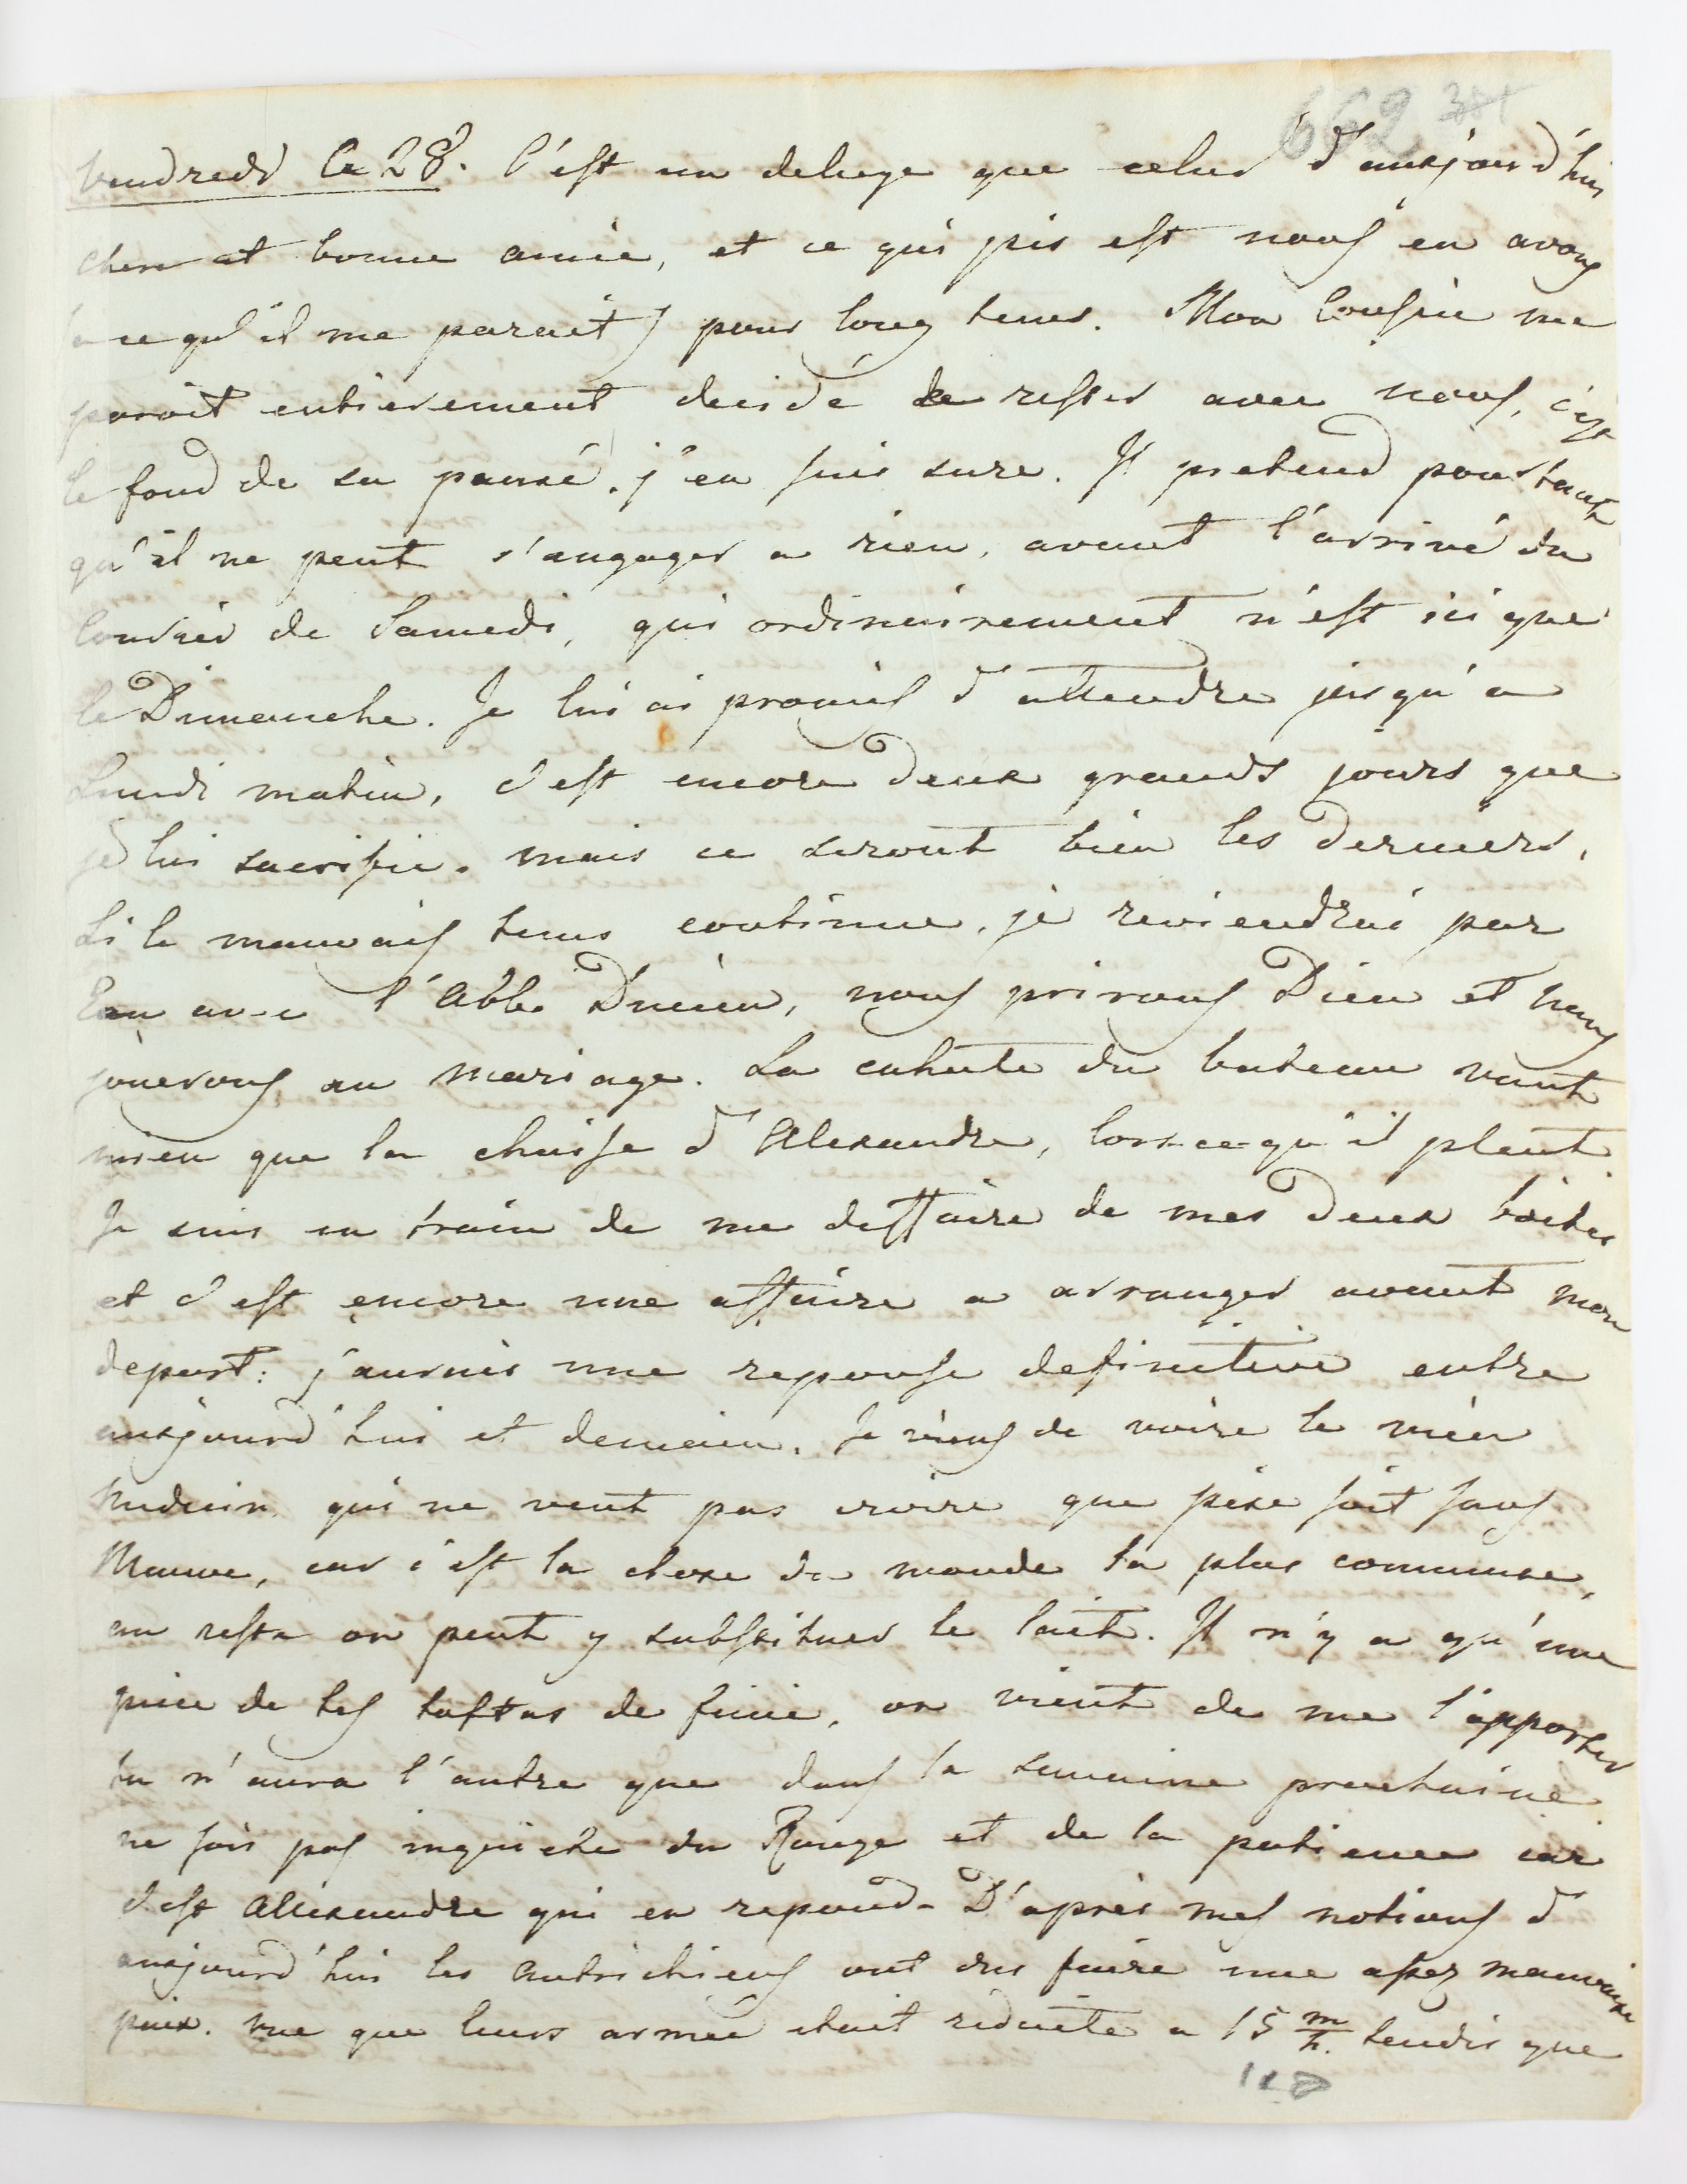 662 381
Vendredi le 28. C'est un deluge que celui d'aujourd'hui
chere et bonne amie, et ce qui pis est nous en avons
a ce qu'il me parait) pour long tems. Mon Cousin me
paroit entierement decidé de rester avec nous, c'est
le fond de sa pensé, j'en suis sure. Il pretend pourtant
qu'il ne peut s'angager a rien, avant l'arrivé du
Courier de Samedi, qui ordinairement n'est ici que
le Dimanche. Je lui ai promis d'attendre jusqu'a
Lundi matin, c'est encore deux grands jours que
je lui sacrifie. mais ce seront bien les derniers,
Si le mauvais tems continue, je reviendrai par
Eau avec l'Abbé, nous prirons Dieu et nous
jouerons au mariage. La cahute du bateau vaut
mieu que la chaise d'Alexandre, lors-ce-qu'il pleut.
Je suis en train de me deffaire de mes deux boites
et c'est encore une affaire a arranger avant mon
depart: j'aurais une reponse definitive entre
aujourd'hui et demain. Je viens de voire le
medecin qui ne veut pas croire que soit sans
Mauve, car c'est la chose du monde la plus commune,
au reste on peut y substituer le lait. Il n'y a qu'une
piece de tes taftas de finie, on vient de me l'apporter
tu n'aura l'autre que dans la semaine prochaine
ne sois pas inquiete du Rouge et de la patience car
c'est Alexandre qui en repond. D'apres mes notions d'
aujourd'hui les Autrichiens ont du faire une assez mauvaise
paix. vue que leurs armée etait reduite a 15 m/h. tendis que
118